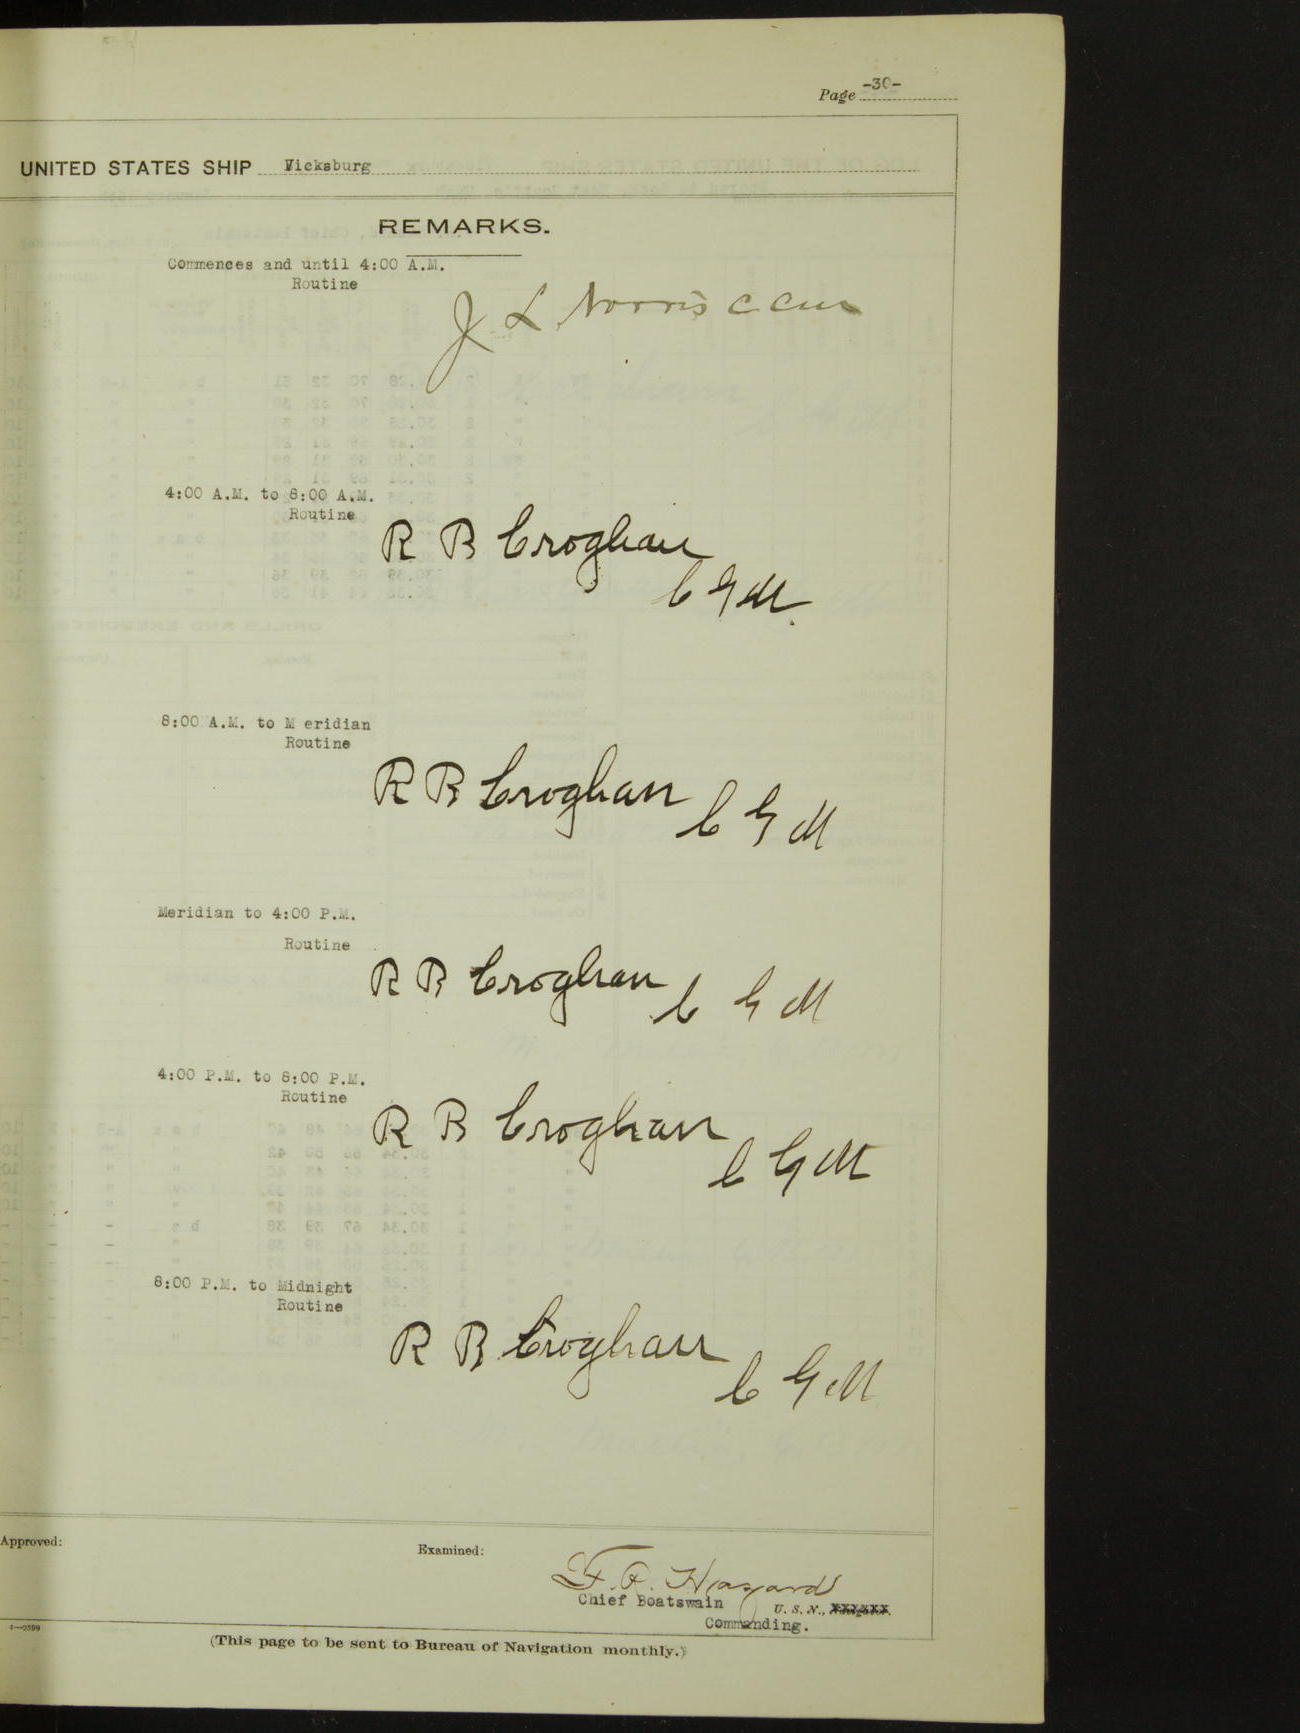 Page -30-
UNITED STATES SHIP Vicksburg
REMARKS.
Commences and until 4:00 A.M.
Routine
J L Norris C C M
4:00 A.M. to 8:00 A.M.
Routine
R B Croghan
C G M.
8:00 A.M. to M eridian
Routine
R B Croghan C G M
Meridian to 4:00 P.M.
Routine
R B Croghan C G M
4:00 P.M. to 8:00 P.M.
Routine
R B Croghan
C G M
8:00 P.M. to Midnight
Routine
R B Croghan
C G M
Approved:
Examined:
Chief Boatswain
U. S. N.,
Commanding.
(This page to be sent to Bureau of Navigation monthly.)